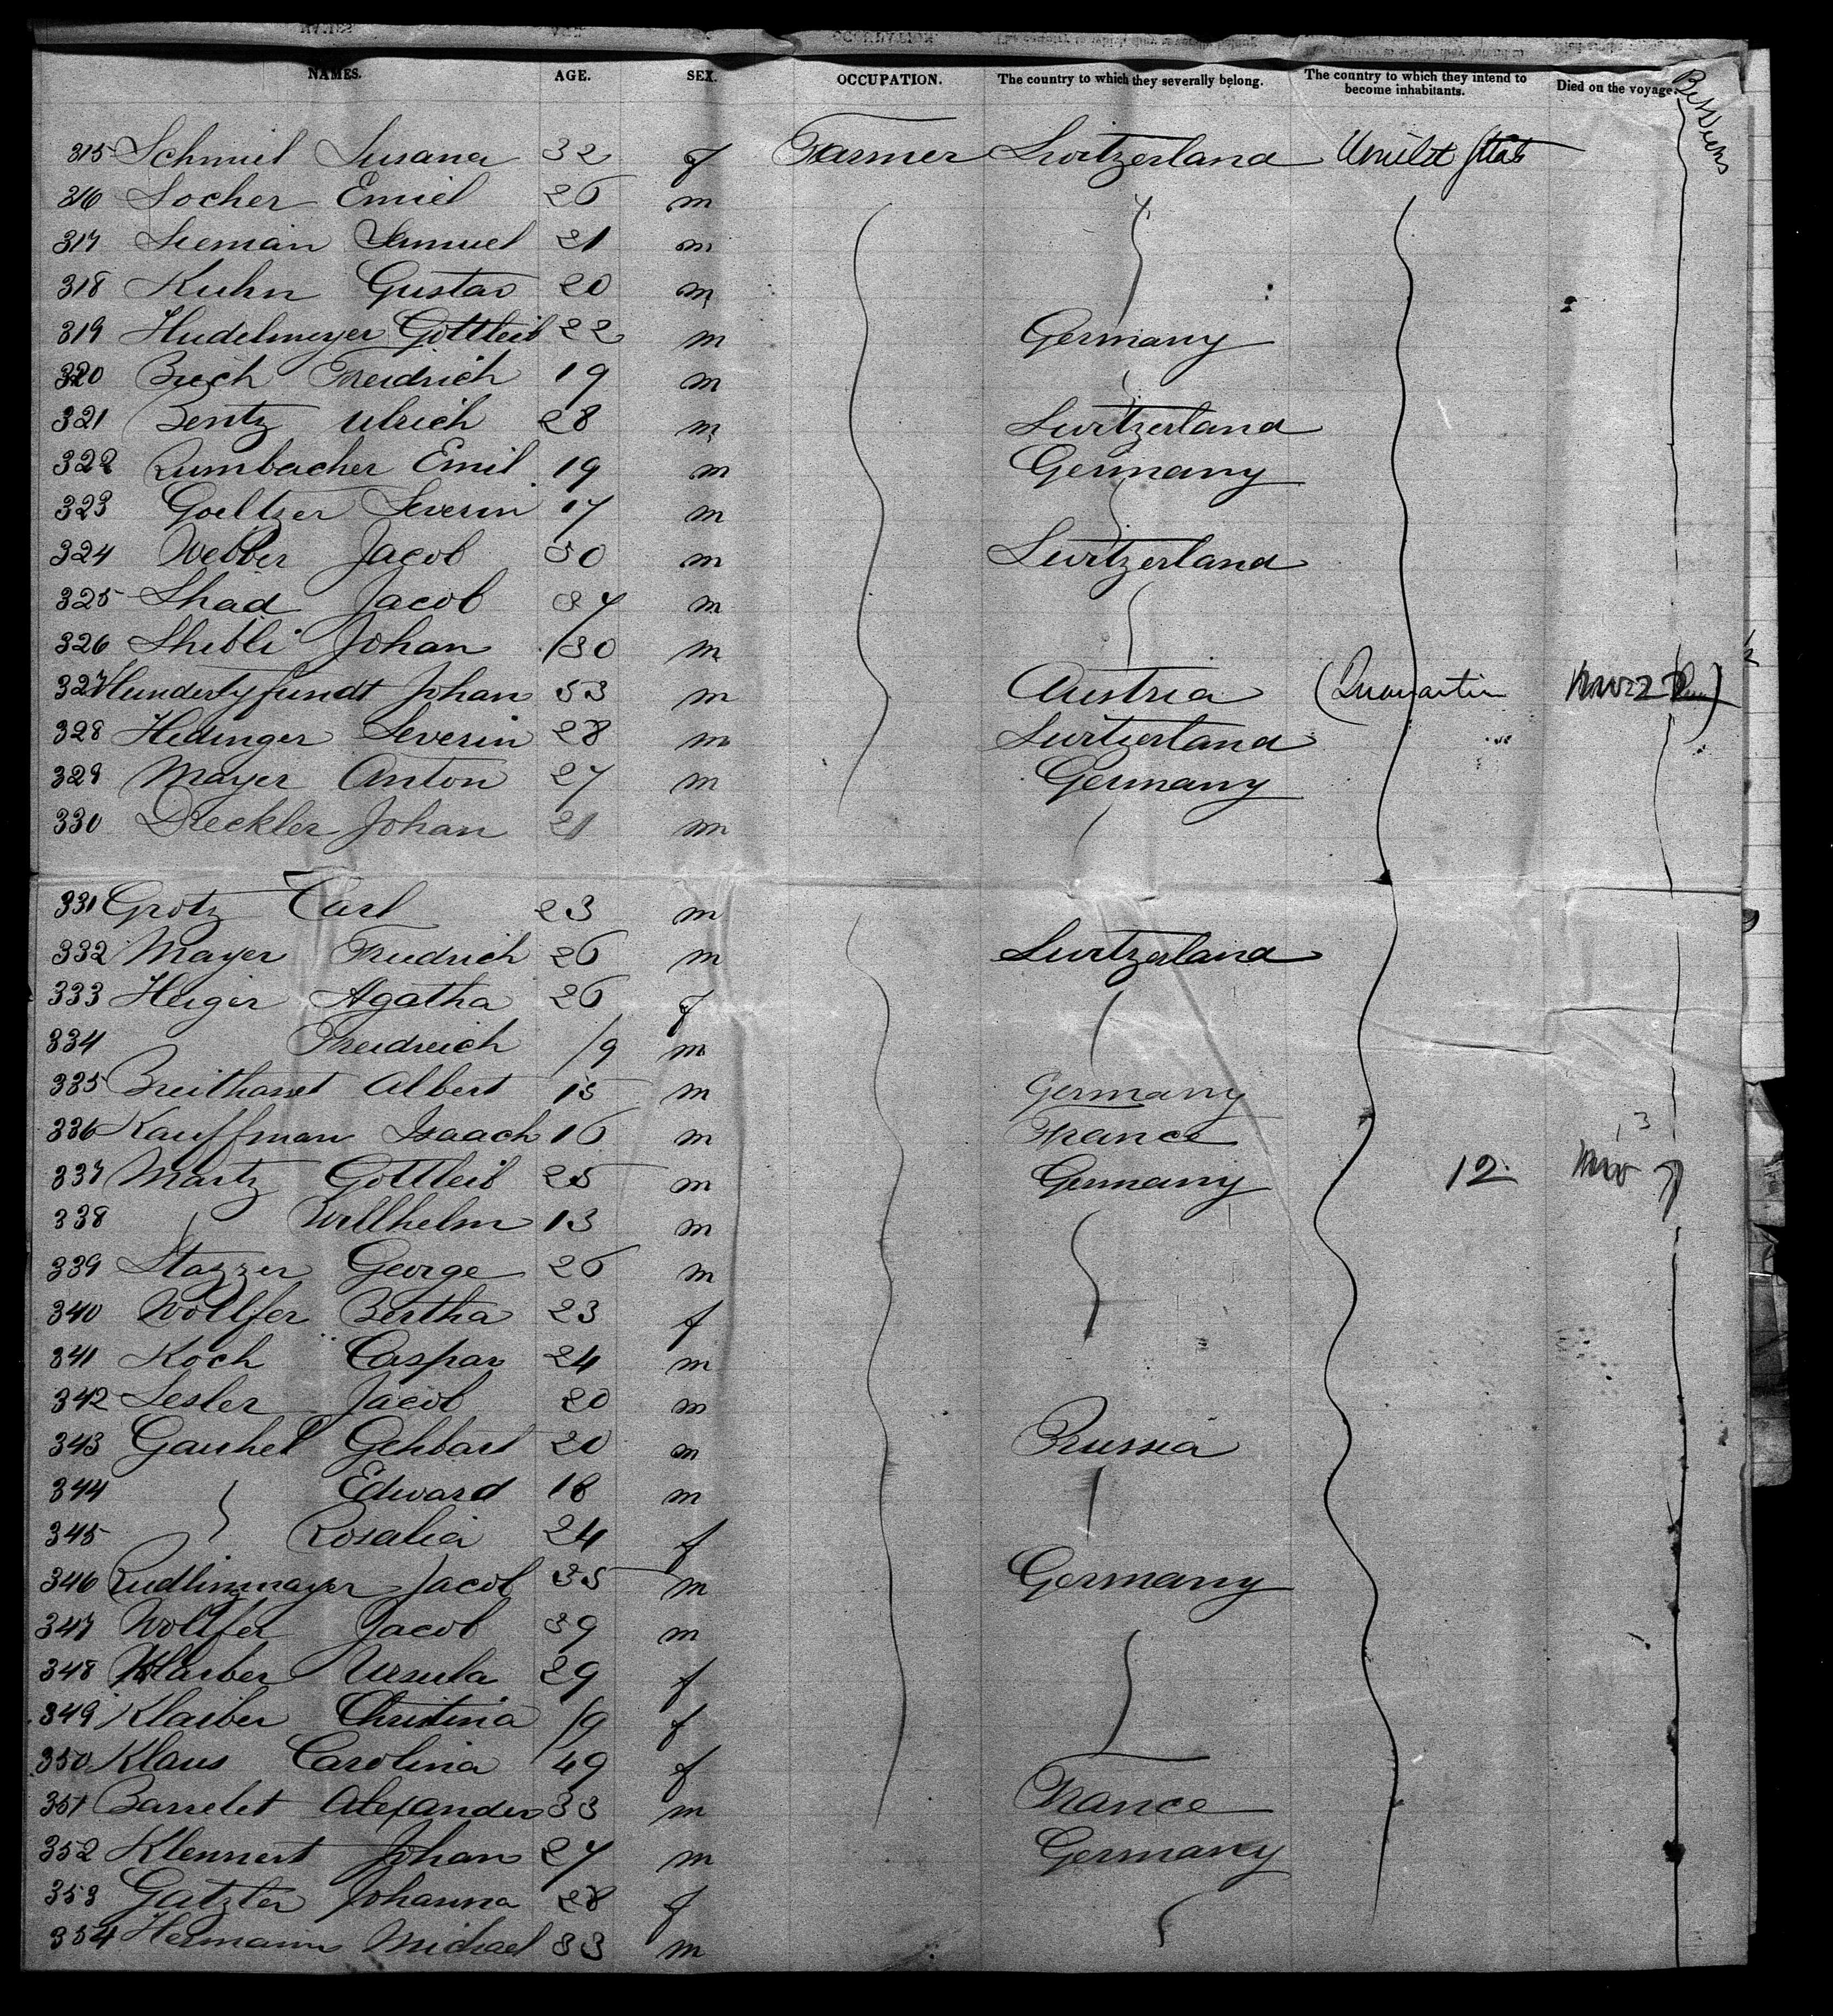 NAMES. AGE. SEX. OCCUPATION. The country to which they severally belong. The country to which they intend to become inhabitants. Died on the voyage.
315 Schmiel Susana 32 f Farmer Switzerland United States
316 Locher Emiel 26 m
317 Sieman Samuel 21 m
318 Kuhn Gustav 20 m
319 Hudelmeyer Gottleib 22 m Germany
320 Buch Freidrich 19 m
321 Bentz Ulrich 28 m Switzerland
322 Rumbacher Emil 19 m Germany
323 Goeltzer Severin 17 m
324 Webber Jacob 30 m Switzerland
325 Shad Jacob 37 m
326 Shibli Johan 30 m
327 Hundertyfundt Johan 53 m Austria
328 Hedinger Severin 28 m Switzerland
329 Mayer Anton 27 m Germany
330 Dreckler Johan 21 m
331 Grotz Carl 23 m
332 Mayer Friedrich 26 m Switzerland
333 Heiger Agatha 26 f
334 Freidreich /9 m
335 Albert 15 m Germany
336 Kauffman Isaach 16 m France
337 Martz Gottleib 25 m Germany 12
338 Willhelm 13 m
339 Stazzer George 26 m
340 Wollfer Bertha 23 f
341 Koch Caspar 24 m
342 Lesler Jacob 20 m
343 Gauhel Gehbart 20 m Russia
344 Edward 18 m
345 Rosalia 24 f
346 Rudlinmayer Jacob 35 m Germany
347 Wollfer Jacob 39 m
348 Klaiber Ursula 29 f
349 Klaiber Christina /9 f
350 Klaus Carolina 49 f
351 Barrelet Alexander 33 m France
352 Klennert Johan 27 m Germany
353 Gatzler Johanna 28 f
354 Hermann Michael 33 m